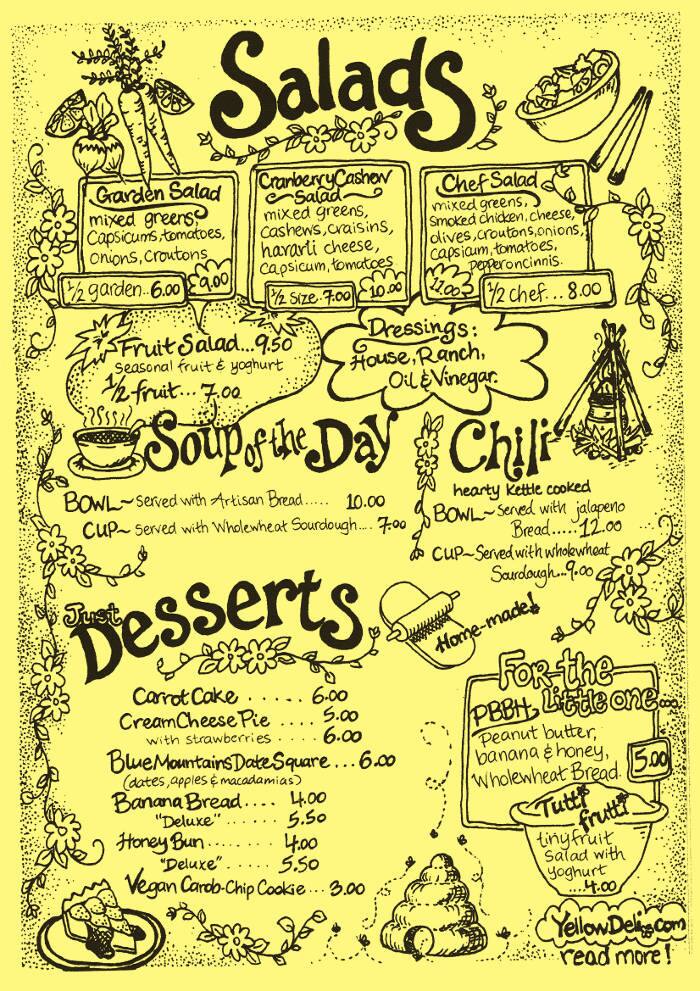 Salads
Garden Salad
mixed greens
Capsicums, tomatoes,
onions, croutons
1/2 garden..6.00
9.00
Cranberry Cashew
Salad
mixed greens,
cashews, craisins,
havarli cheese,
capsicum, tomatoes
1/2 size. 7.00
10.00
Chef Salad
mixed greens,
smoked chicken, cheese,
olives, croutons, onions,
capsicum, tomatoes,
pepperoncinnis.
11.00
1/2 chef... 8.00
Fruit Salad... 9.50
Seasonal fruit & yoghurt
1/2 fruit... 7.00
Dressings:
House, Ranch,
Oil & Vinegar.
Soup of the Day
BOWL~ Served with Artisan Bread..... 10.00
CUP~ Served with Wholewheat Sourdough.... 7.00
Chili
hearty kettle cooked
BOWL~ Served with jalapeno
Bread.....12.00
CUP~ Served with wholewheat
Sourdough...9.00
Just
Desserts
Home-made!
Carrot Cake ..... 6.00
Cream Cheese Pie .... 5.00
with strawberries .... 6.00
Blue Mountains Date Square ... 6.00
(dates, apples & macadamias)
Banana Bread.... 4.00
"Deluxe" ...... 5.50
Honey Bun...... 4.00
"Deluxe" ..... 5.50
Vegan Carob-Chip Cookie... 3.00
For the
little one...
PBBH
Peanut butter,
banana & honey,
Wholewheat Bread.
5.00
Tutti
frutti
tiny fruit
Salad with
yoghurt
....4.00
YellowDeli.com
read more!